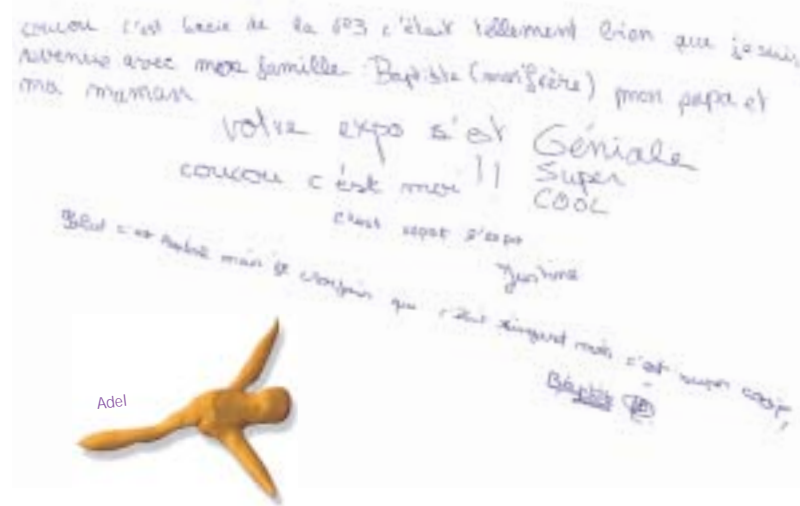 coucou c'est lucie de la 603 c'était tellement bien que je suis
revenue avec moa famille Baptiste (mon frère) mon papa et
ma maman
votre expo s'est Géniale
coucou c'est moi !! Super
COOL
c'est l'expo
Justine
c'est mais je que c'était ringard mais c'est super cool,
Baptiste
Adel